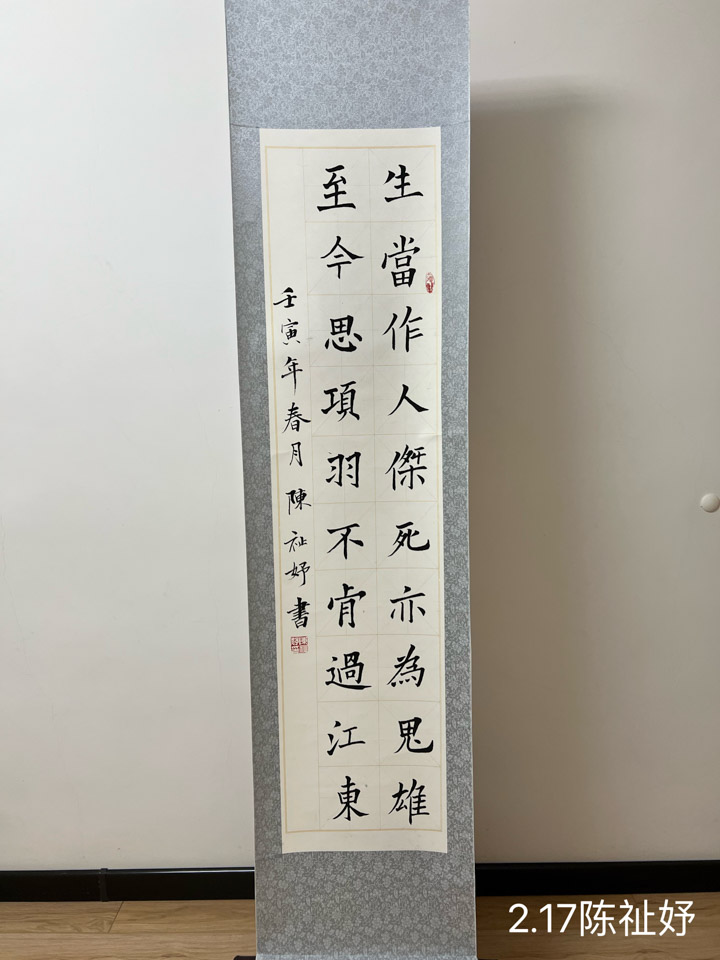 生當作人傑死亦為鬼雄
至今思項羽不肯過江東
壬寅年春月陳祉妤書
2.17陈祉妤